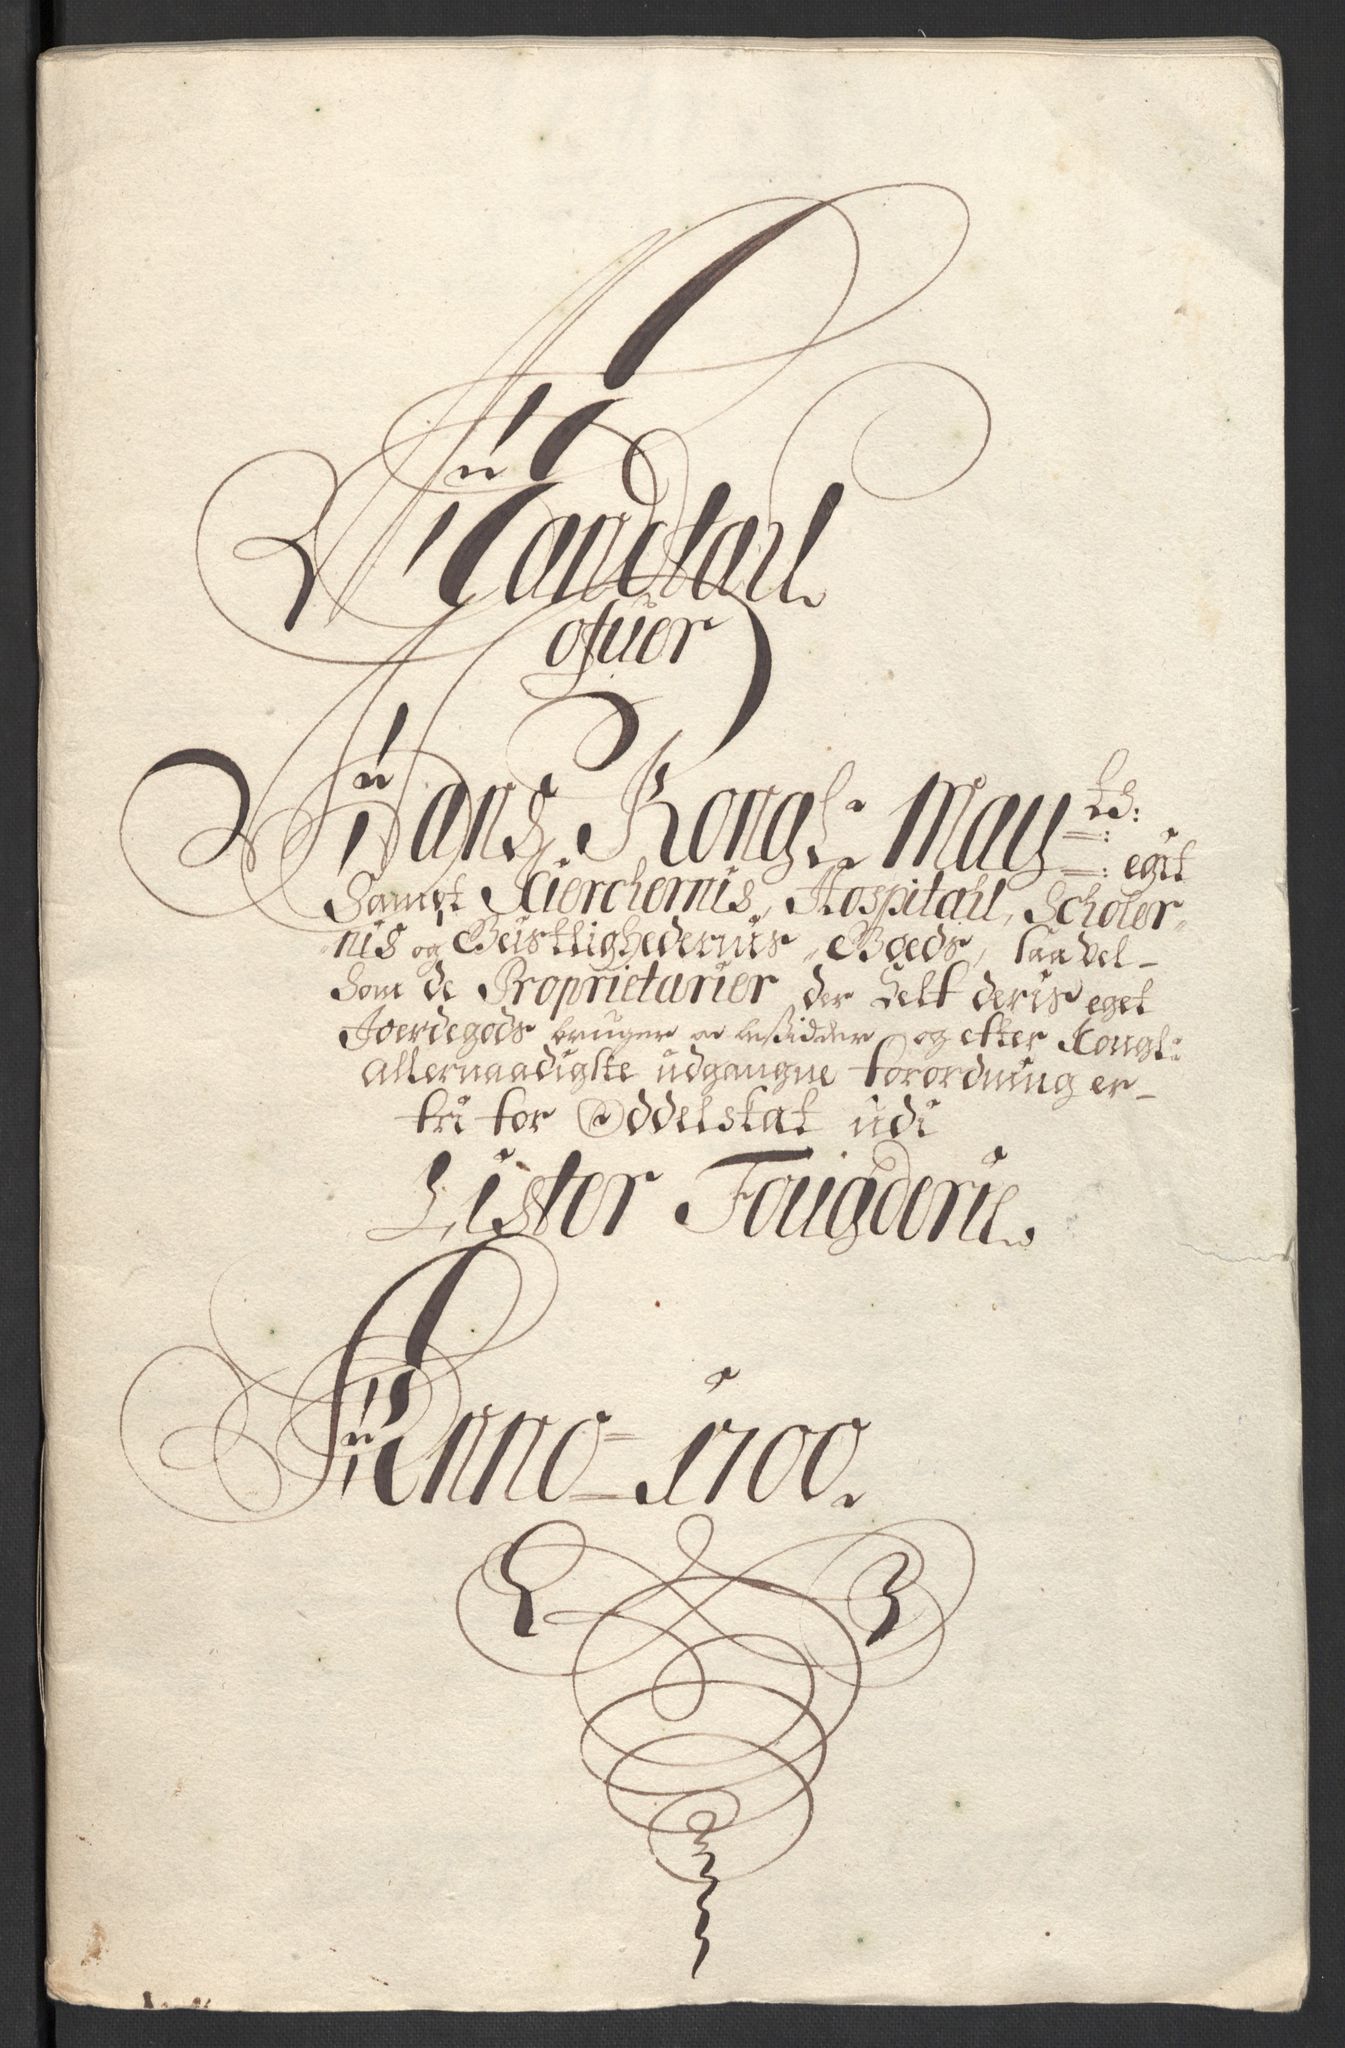 Mandtall
ofuer
Hans Kongl: May:ts: eget
Sampt Kierchernis, Hospitahl, Scholer-
nis og Geistlighedernis Goeds, saavel-
Som de Proprietarier der Selt deris eget
Joerdegods bruger oc besidder og efter Kongl:
allernaadigste udgangne forordning er-
fri for Oddelskat udi
Lister Fougderie
Anno 1700.